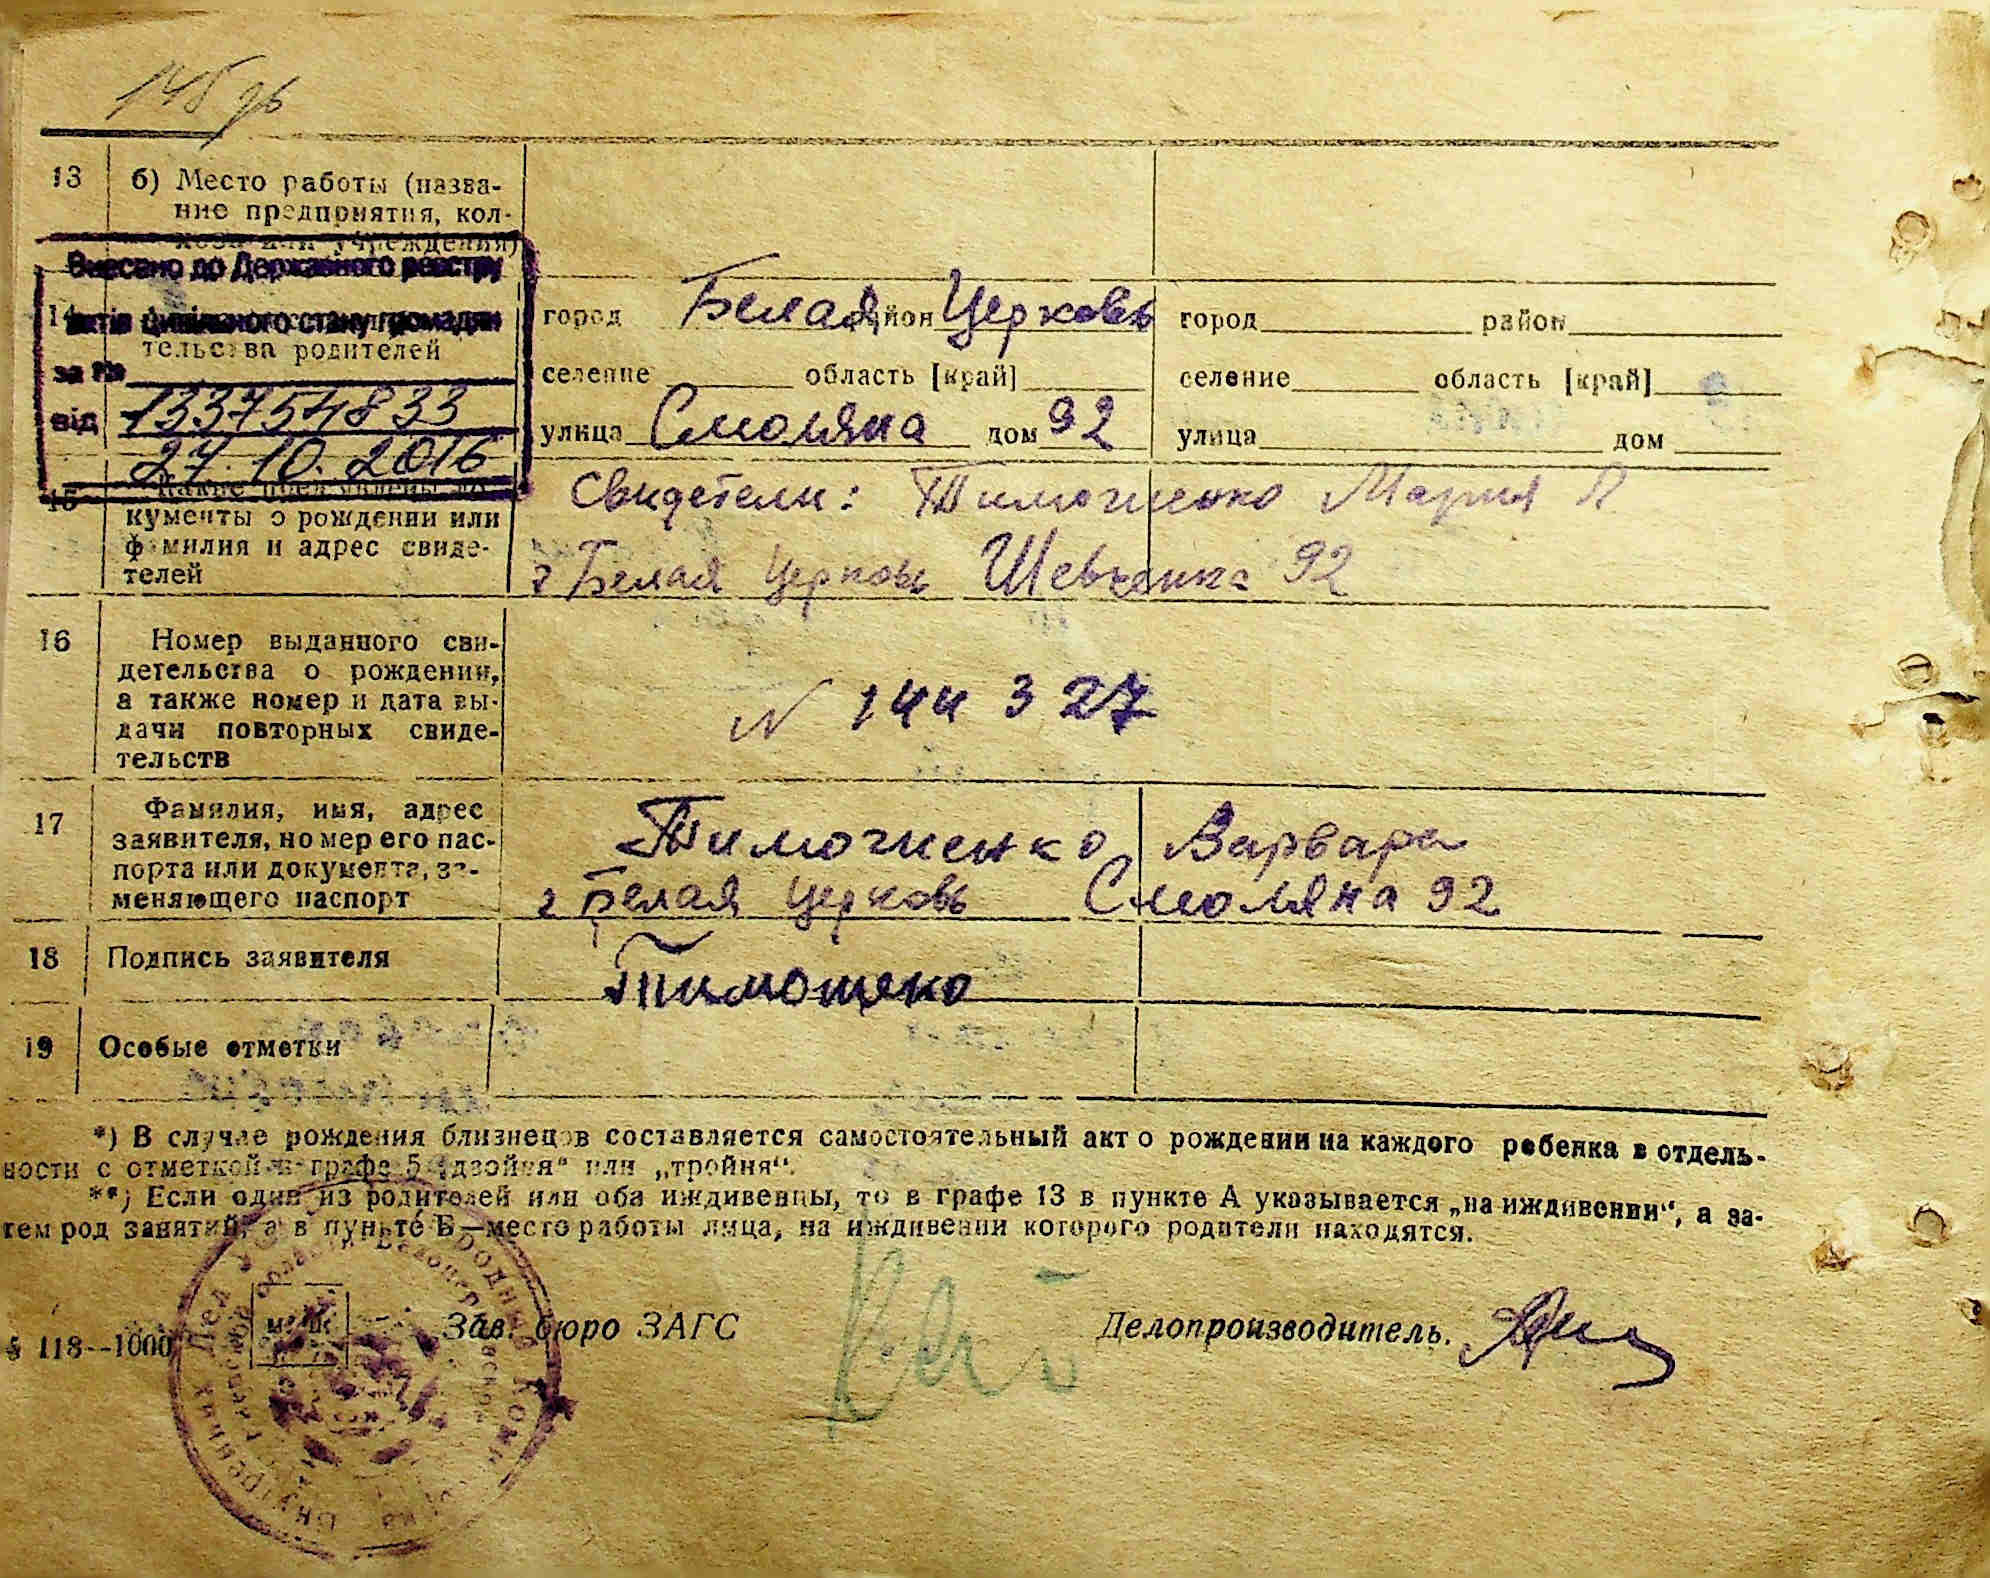 13 б) Место работы (назва-
ние предприятия, кол-
хоза или учреждения)
Внесено до Державного реєстру
14 актів цивільного стану громадян
тельства родителей
за №
133754833
від
27.10.2016
город Белая район Церковь
селение область [край]
улица Смоляна дом 92
город район
селение область [край]
улица дом
15
кументы о рождении или
фамилия и адрес свиде-
телей
Свидетели: Тимошенко Мария
г Белая Церковь Шевченка 92
16 Номер выданного сви-
детельства о рождении,
а также номер и дата вы-
дачи повторных свиде-
тельств
N 144327
17 Фамилия, имя, адрес
заявителя, номер его пас-
порта или документа, за-
меняющего паспорт
Тимошенко Варвара
г Белая Церковь Смоляна 92
18 Подпись заявителя
19 Особые отметки
*) В случае рождения близнецов составляется самостоятельный акт о рождении на каждого ребенка в отдель-
ности с отметкой в графе 5 „двойня“ или „тройня“.
**) Если один из родителей или оба иждивенцы, то в графе 13 в пункте А указывается „на иждивении“, а за-
тем род занятий, а в пункте Б—место работы лица, на иждивении которого родители находятся.
118—1000
Зав. бюро ЗАГС
Делопроизводитель.